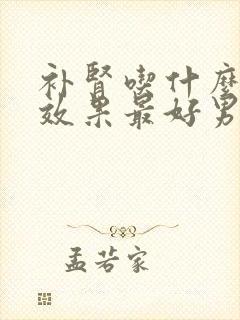 补腎喫什麼
效果最好男
孟若家